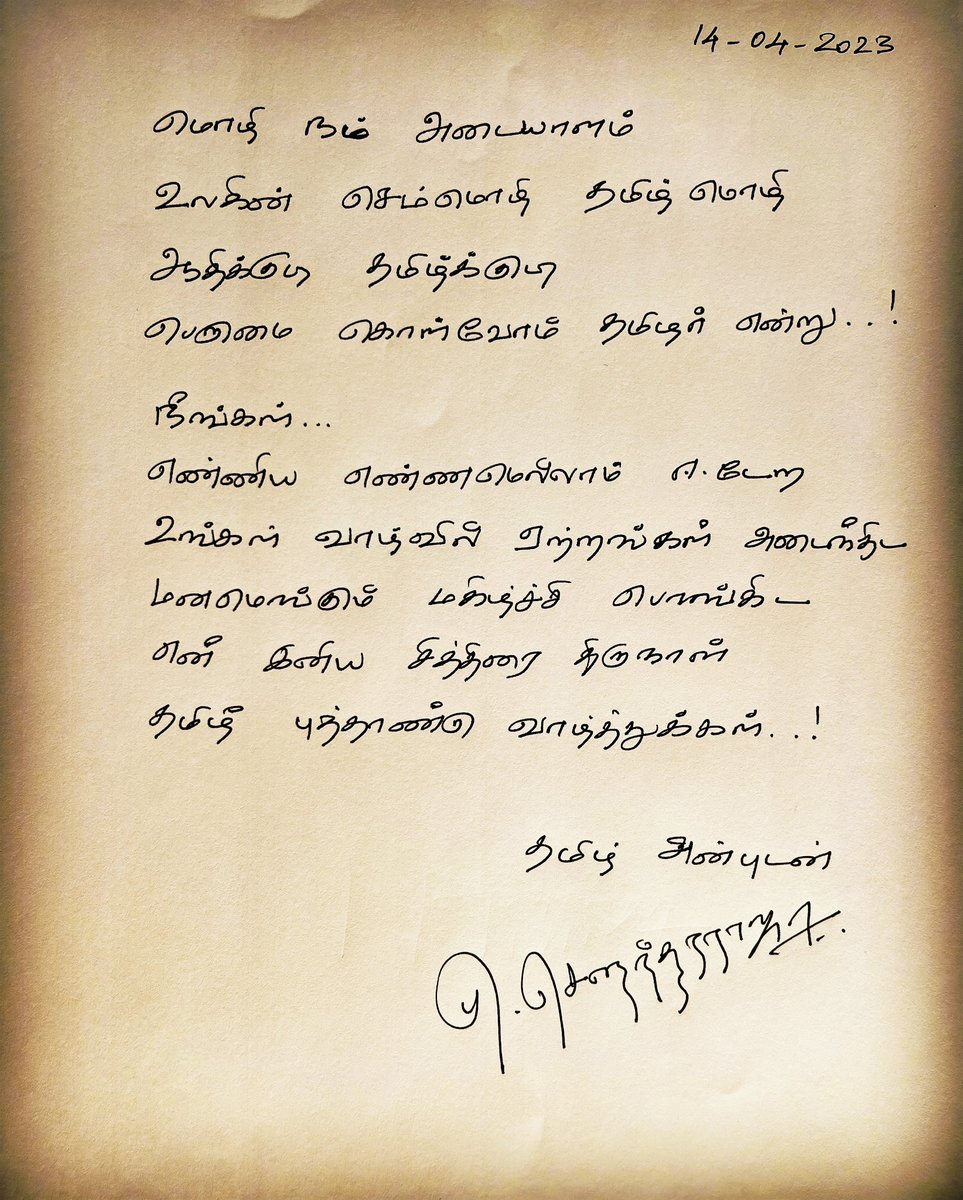 14-04-2023
மொழி நம் அடையாளம்
உலகின் செம்மொழி தமிழ் மொழி
ஆதிக்குடி தமிழ்க்குடி
பெருமை கொள்வோம் தமிழர் என்று...!
நீங்கள்...
எண்ணிய எண்ணமெல்லாம் ஈடேற
உங்கள் வாழ்வில் ஏற்றங்கள் அடைந்திட
மனமெங்கும் மகிழ்ச்சி பொங்கிட
என் இனிய சித்திரை திருநாள்
தமிழ் புத்தாண்டு வாழ்த்துக்கள்...!
தமிழ் அன்புடன்